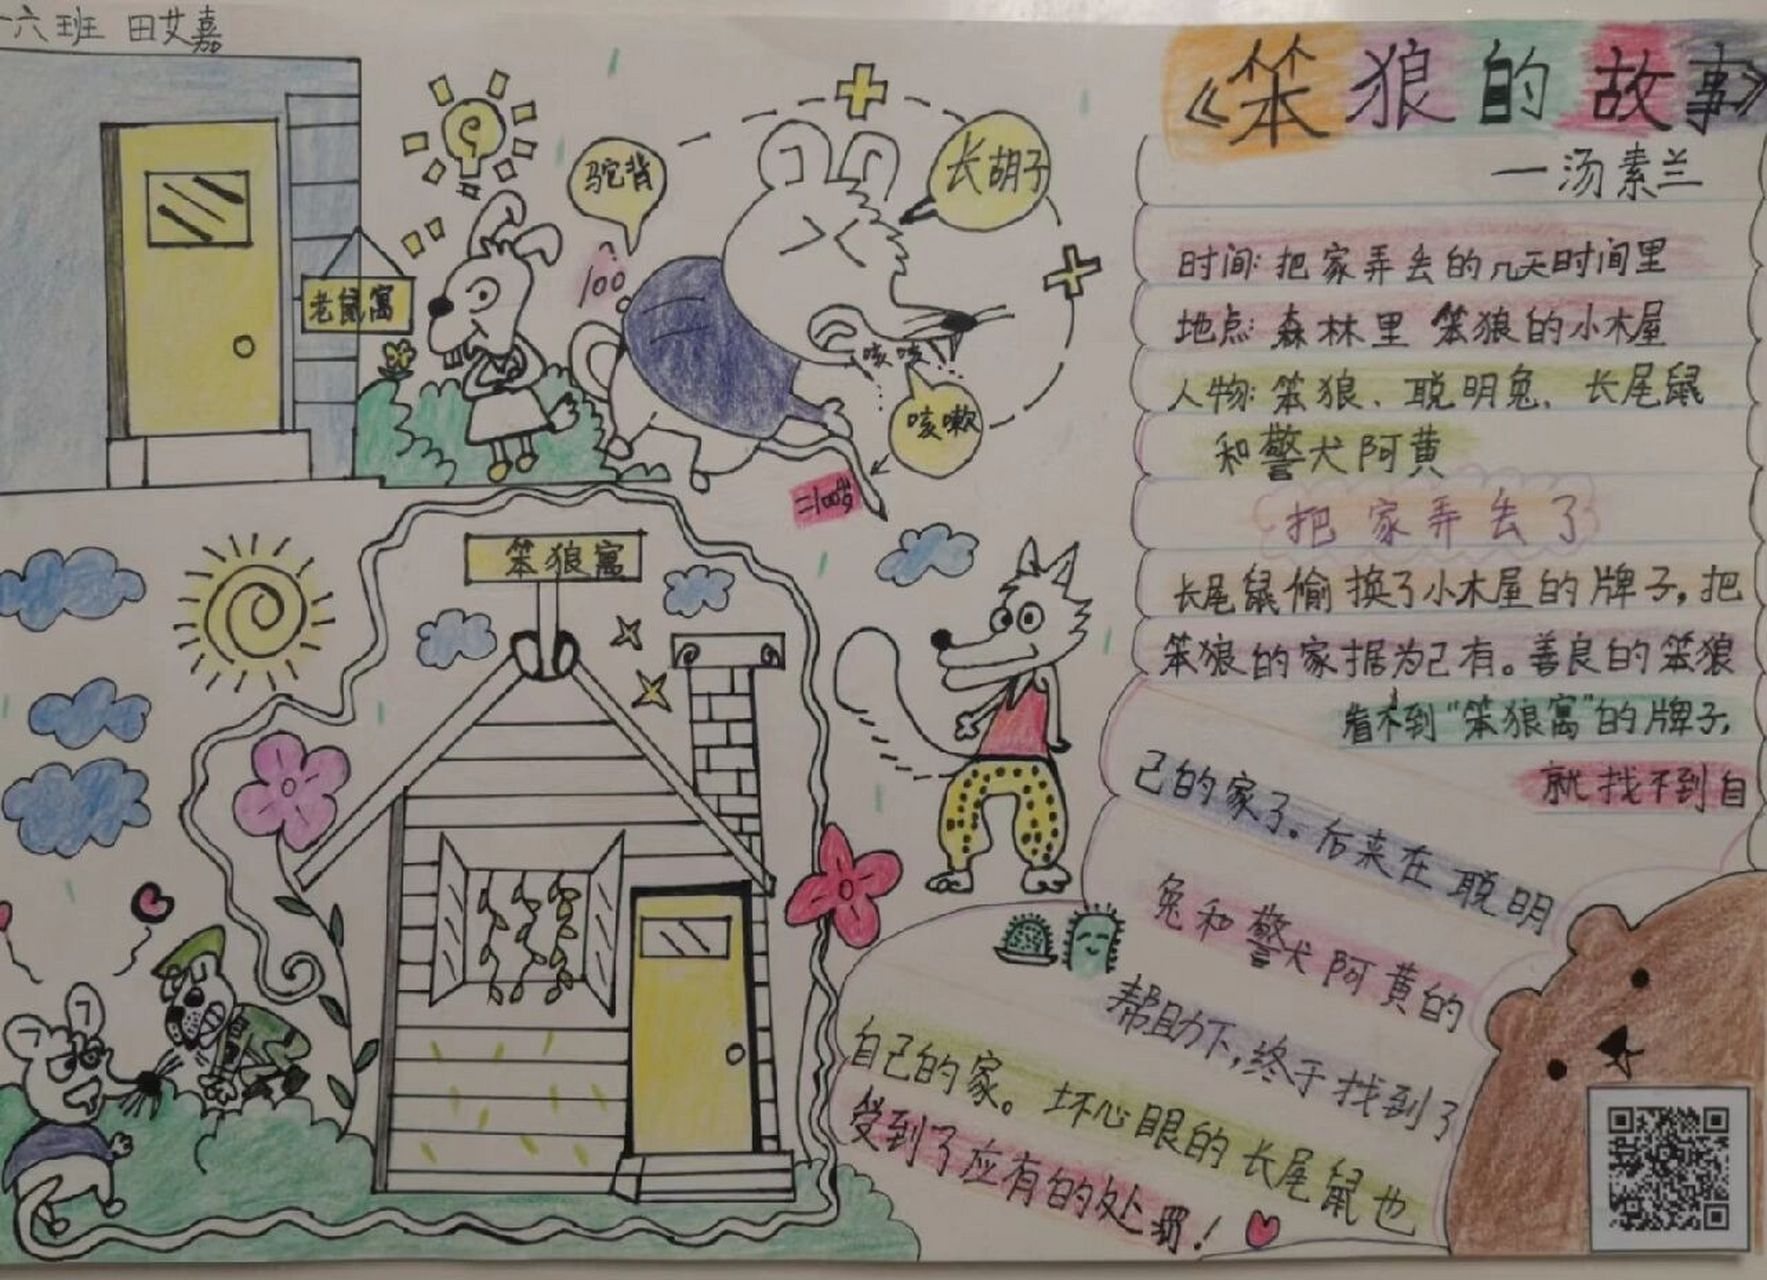 六班 田艾嘉
《笨狼的故事》
—汤素兰
时间:把家弄丢的几天时间里
地点:森林里 笨狼的小木屋
人物:笨狼、聪明兔、长尾鼠
和警犬阿黄
把家弄丢了
长尾鼠偷换了小木屋的牌子,把
笨狼的家据为己有。善良的笨狼
看不到“笨狼寓”的牌子,
就找不到自
己的家了。后来在聪明
兔和警犬阿黄的
帮助下,终于找到了
自己的家。坏心眼的长尾鼠也
受到了应有的处罚!
老鼠寓
驼背
100
长胡子
咳咳
咳嗽
二100岁
笨狼寓